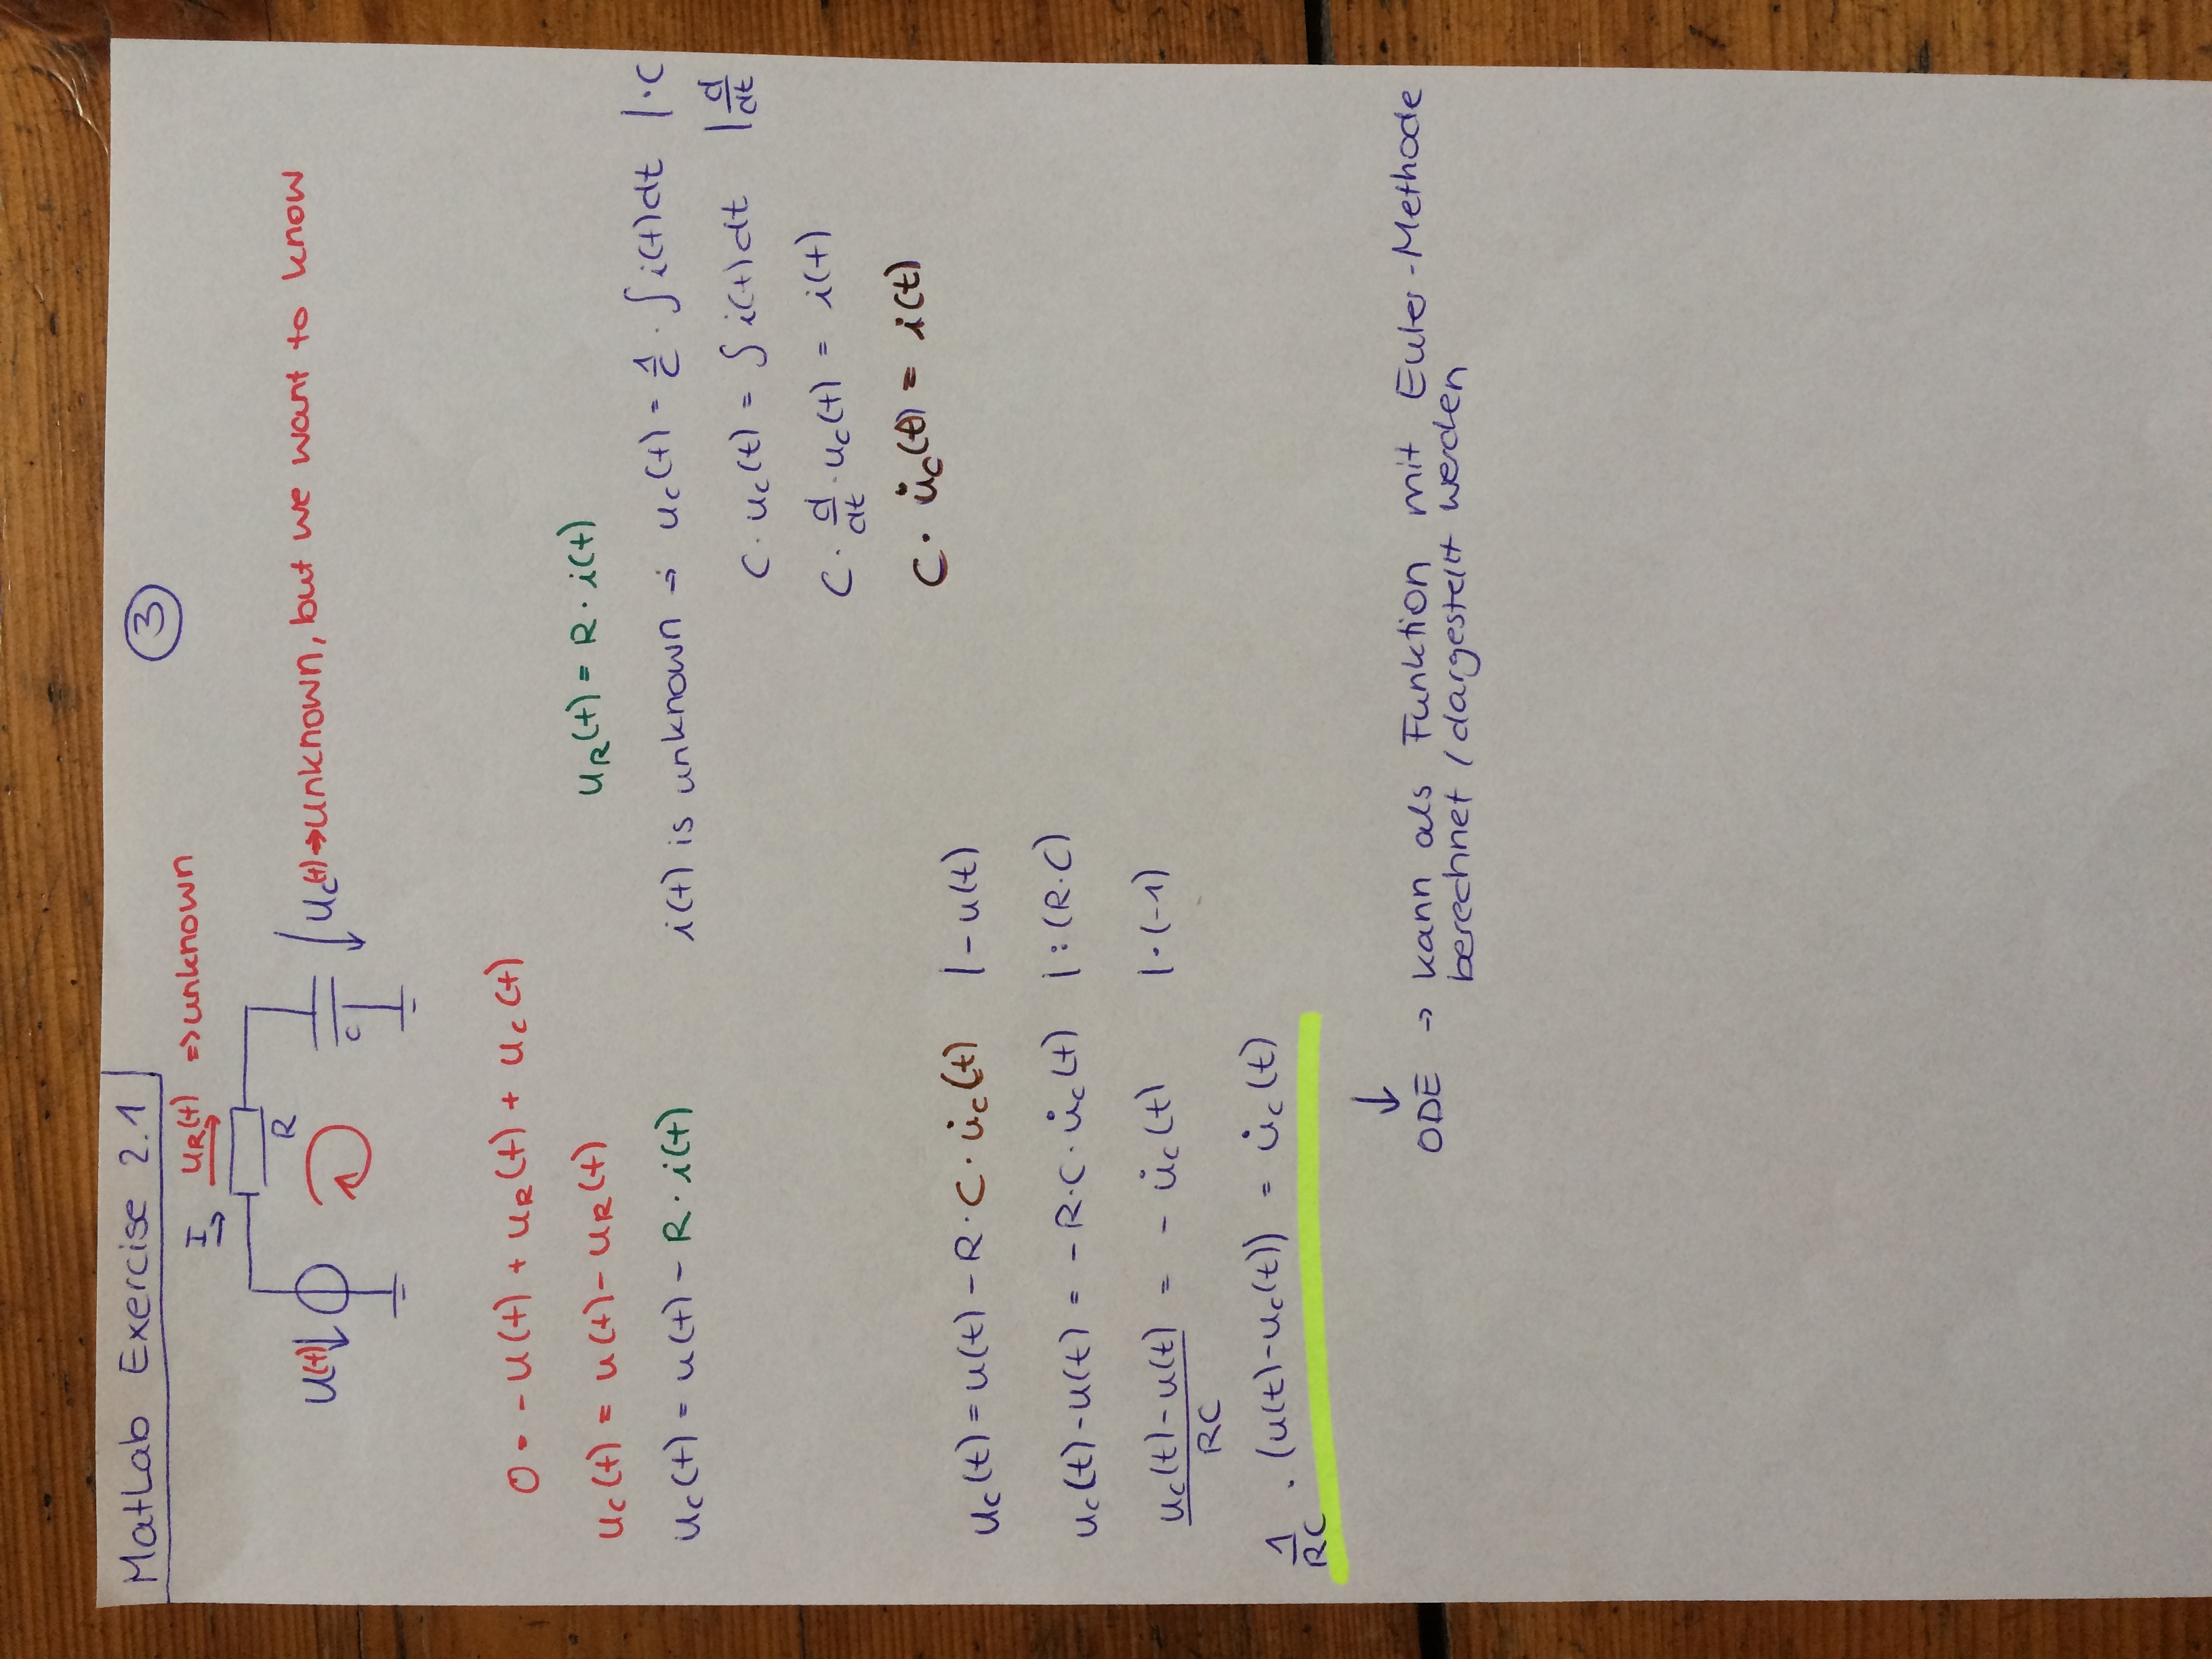 MatLab Exercise 2.1
3
I u_R(t) => unknown
R
U(t) u_c(t) → unknown, but we want to know
C
0 = -u(t) + u_R(t) + u_c(t)
u_c(t) = u(t) - u_R(t) u_R(t) = R · i(t)
u_c(t) = u(t) - R · i(t) i(t) is unknown → u_c(t) = 1/C · ∫ i(t) dt | · C
C · u_c(t) = ∫ i(t) dt | d/dt
C · d/dt · u_c(t) = i(t)
C · u̇_c(t) = i(t)
u_c(t) = u(t) - R · C · u̇_c(t) | - u(t)
u_c(t) - u(t) = - R · C · u̇_c(t) | : (R · C)
(u_c(t) - u(t))/RC = - u̇_c(t) | · (-1)
1/RC · (u(t) - u_c(t)) = u̇_c(t)
↓
ODE → kann als Funktion mit Euler-Methode
berechnet / dargestellt werden